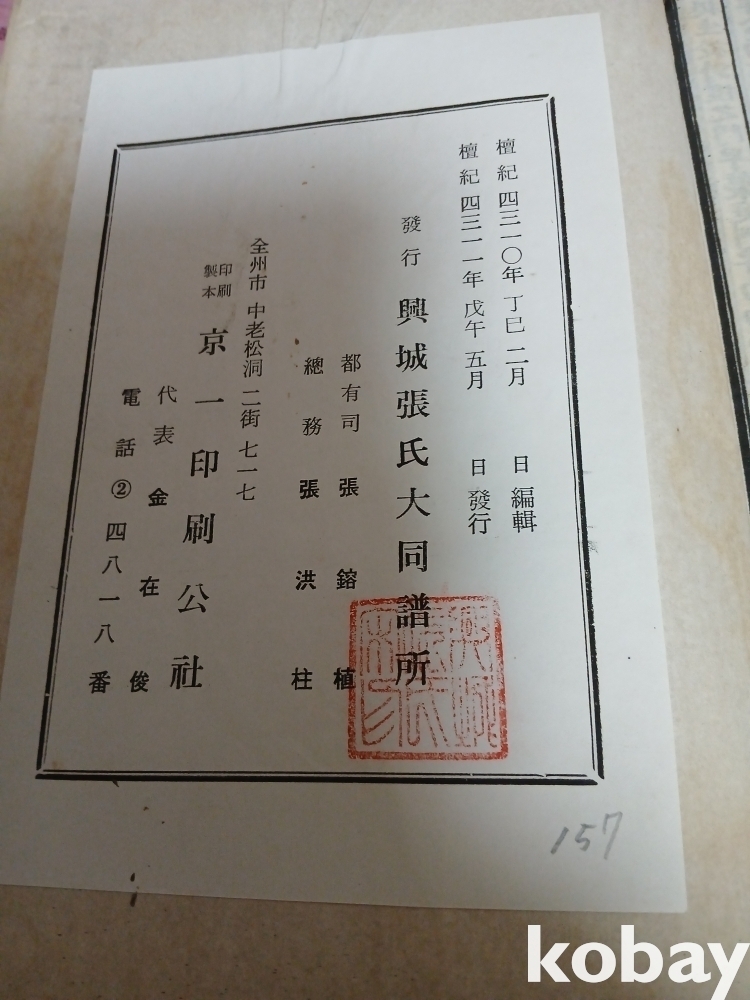 檀紀 四三一〇年 丁巳 二月 日 編輯
檀紀 四三一一年 戊午 五月 日 發行
發行 興城張氏大同譜所
都有司 張鎔植
總務 張洪柱
全州市 中老松洞 二街 七一七
印刷
製本
京一印刷公社
代表 金在俊
電話②四八一八番
157
kobay